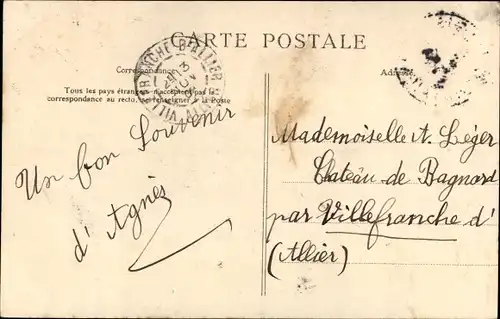 CARTE POSTALE
Correspondance
Tous les pays étrangers n'acceptent pas la
correspondance au recto, se renseigner à la Poste
Un bon Souvenir
d'Agnès
Adresse
Mademoiselle A. Léger
Château de Bagnard
par Villefranche d'
(Allier)
VILLEFRANCHE-D'ALLIER